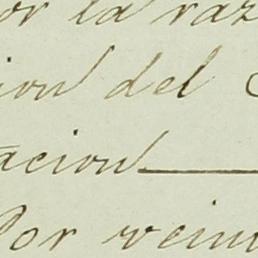 or la raz
ion del
acion
Por vein